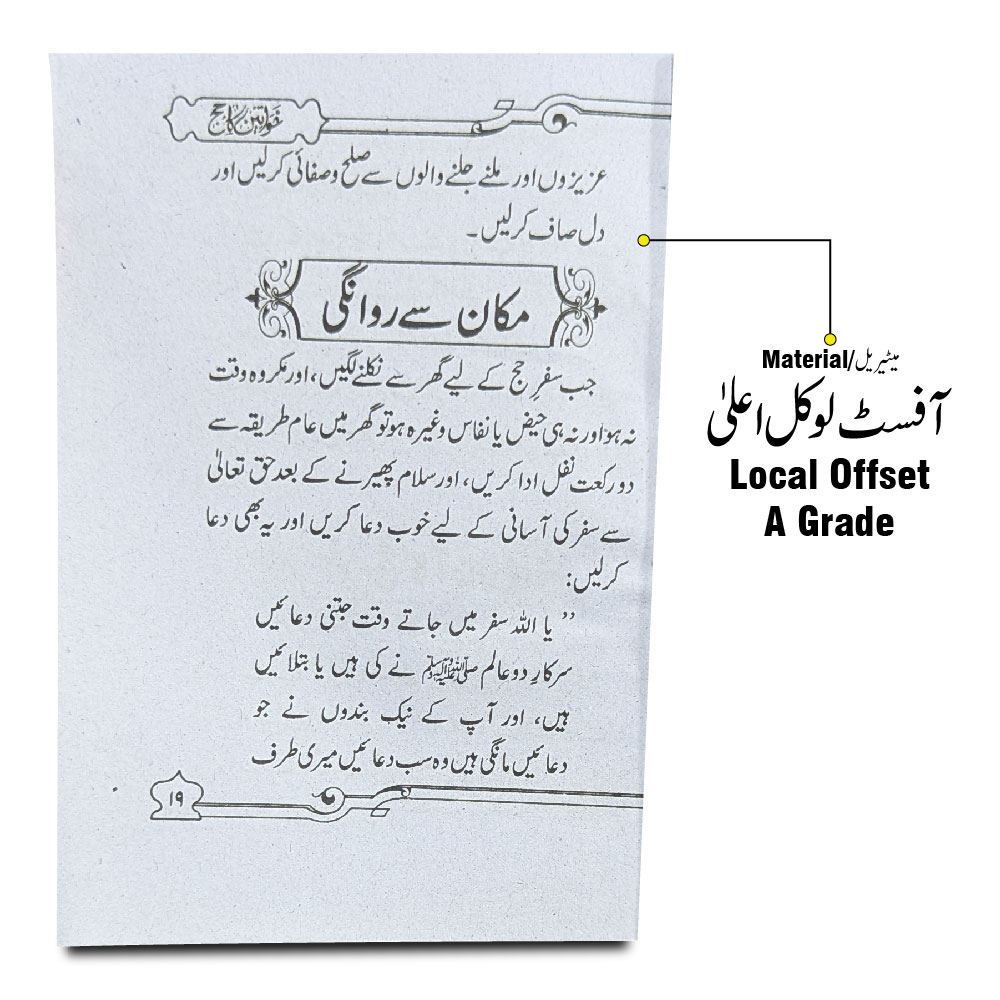 خواتین کا حج
عزیزوں اور ملنے جلنے والوں سے صلح و صفائی کرلیں اور
دل صاف کرلیں۔
مکان سے روانگی
جب سفرِ حج کے لیے گھر سے نکلنے لگیں، اور مکروہ وقت
نہ ہو اور نہ ہی حیض یا نفاس وغیرہ ہو تو گھر میں عام طریقہ سے
دو رکعت نفل ادا کریں، اور سلام پھیرنے کے بعد حق تعالیٰ
سے سفر کی آسانی کے لیے خوب دعا کریں اور یہ بھی دعا
کرلیں:
”یا اللہ سفر میں جاتے وقت جتنی دعائیں
سرکارِ دو عالم ﷺ نے کی ہیں یا بتلائیں
ہیں، اور آپ کے نیک بندوں نے جو
دعائیں مانگی ہیں وہ سب دعائیں میری طرف
۱۹
Material/میٹیریل
آفسٹ لوکل اعلیٰ
Local Offset
A Grade